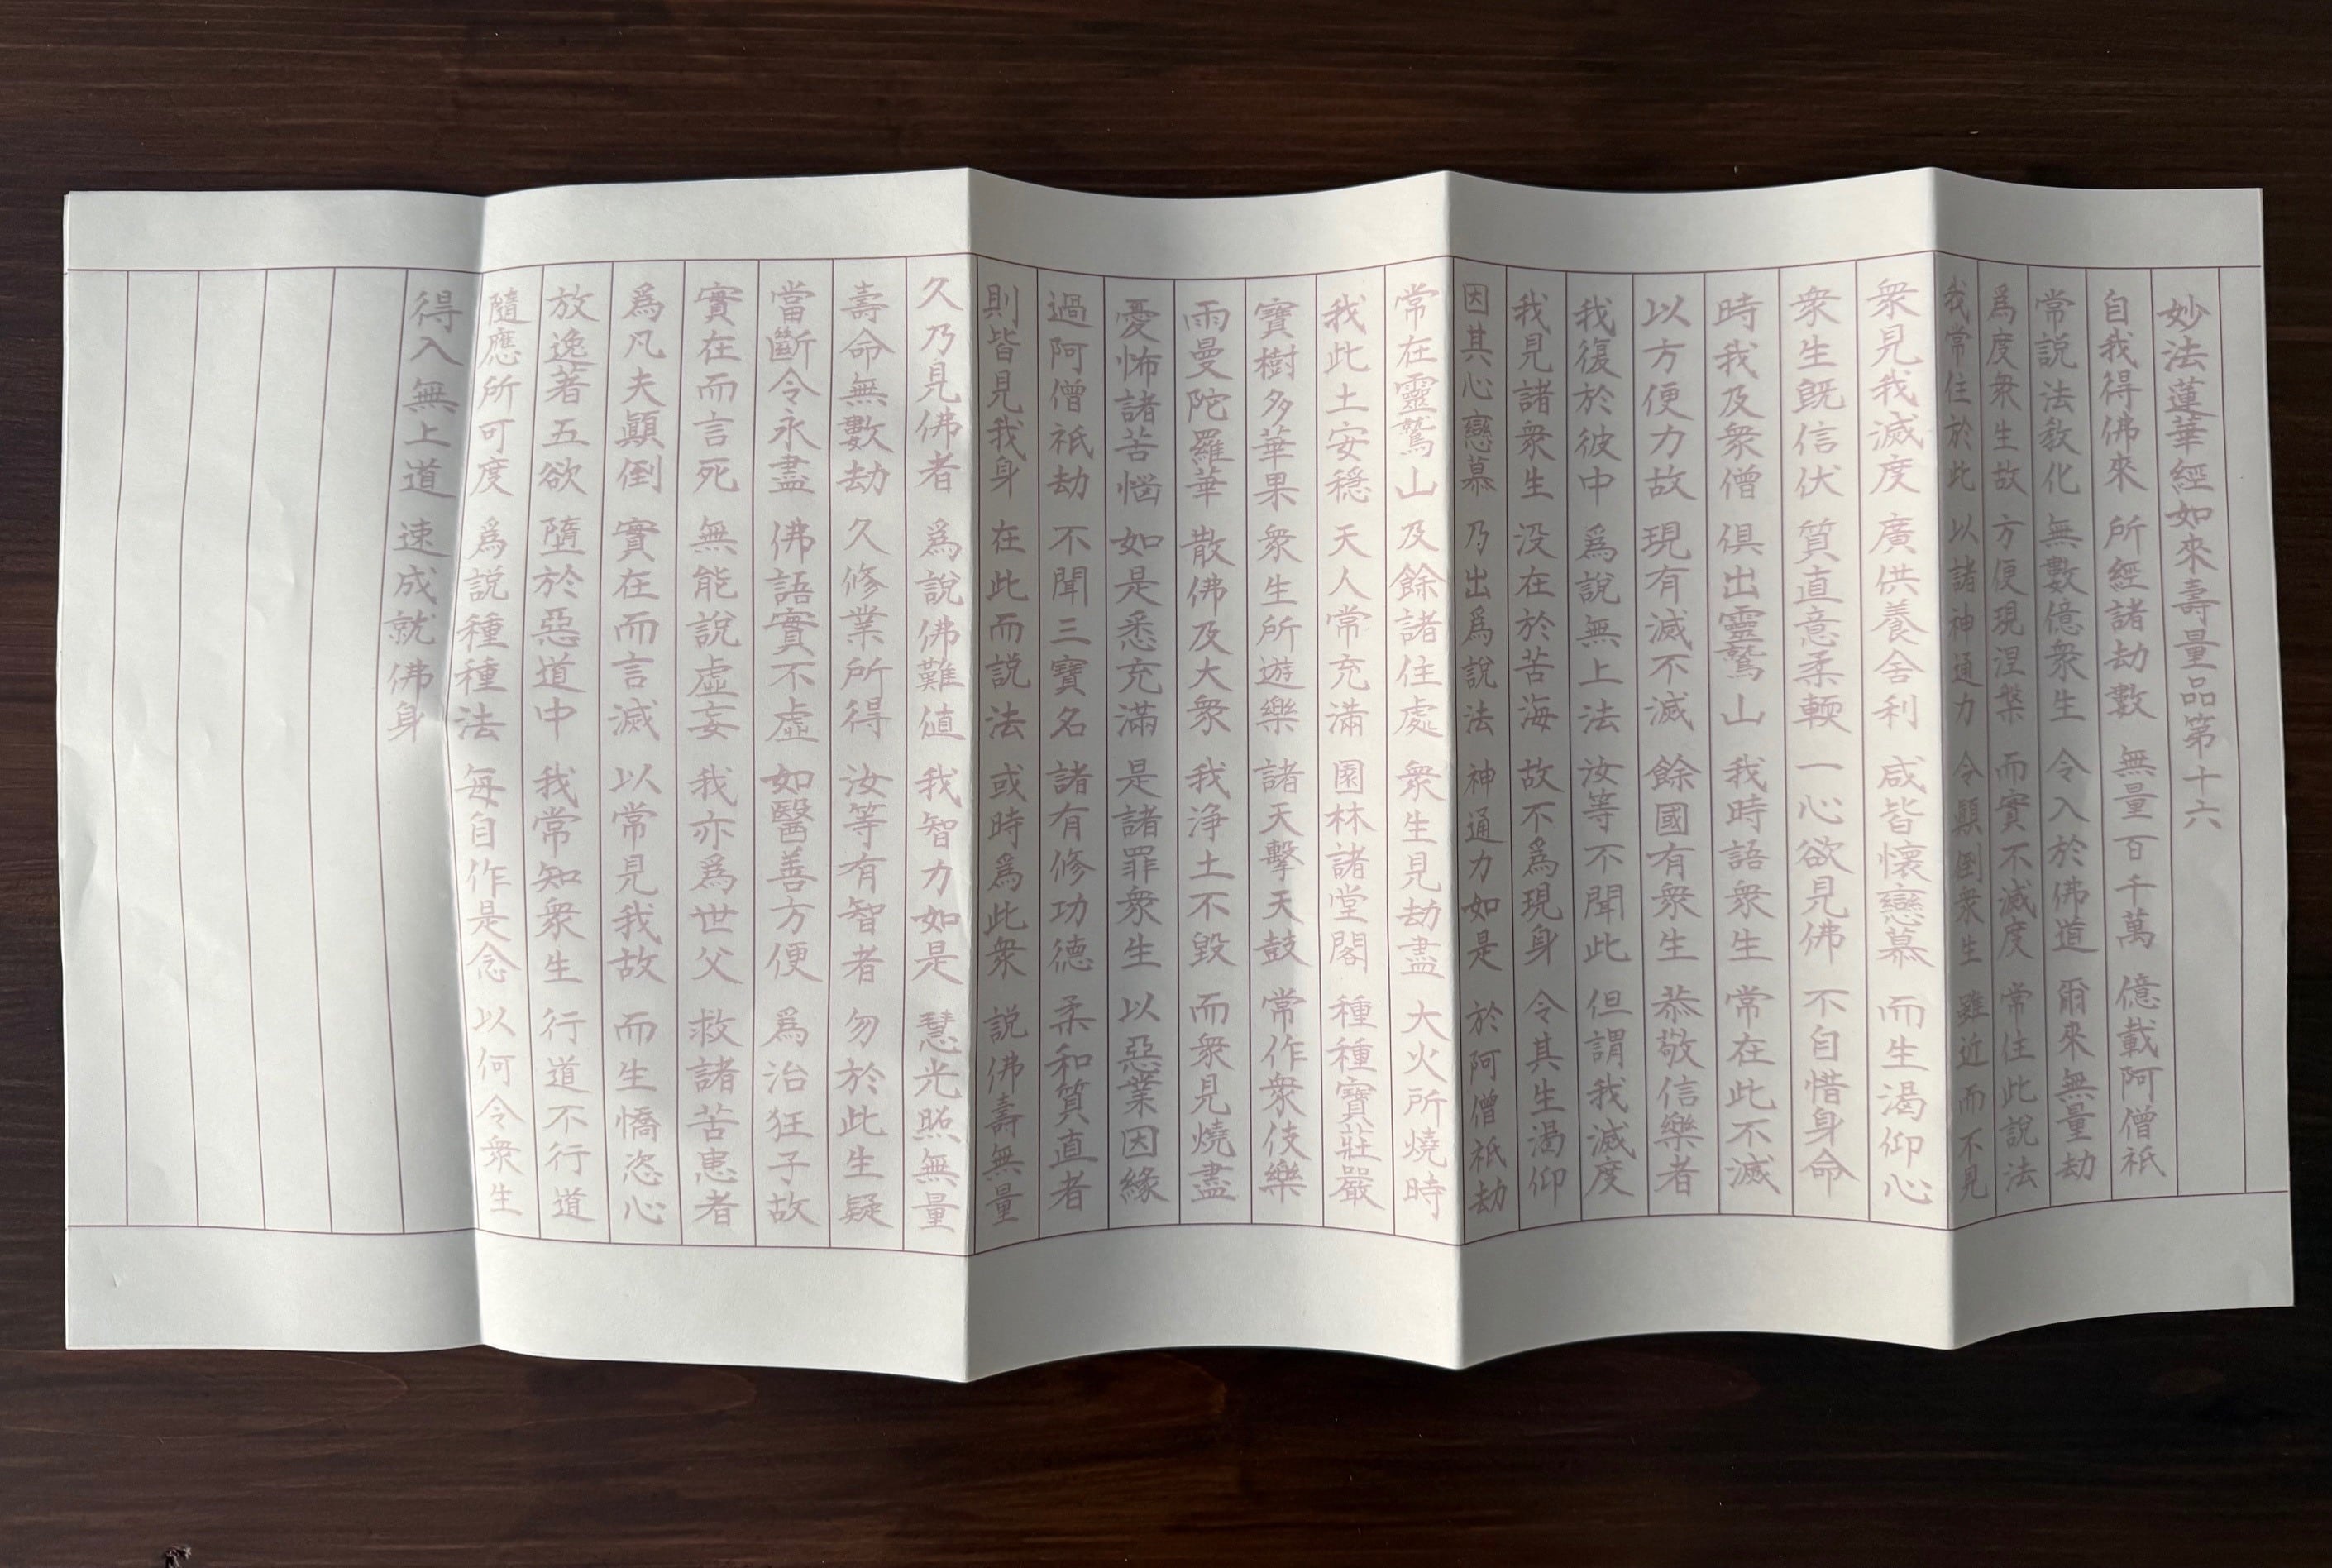 妙法蓮華經如來壽量品第十六
自我得佛來 所經諸劫數 無量百千萬 億載阿僧祇
常説法敎化 無數億衆生 令入於佛道 爾來無量劫
爲度衆生故 方便現涅槃 而實不滅度 常住此説法
我常住於此 以諸神通力 令顚倒衆生 雖近而不見
衆見我滅度 廣供養舍利 咸皆懷戀慕 而生渴仰心
衆生既信伏 質直意柔輭 一心欲見佛 不自惜身命
時我及衆僧 俱出靈鷲山 我時語衆生 常在此不滅
以方便力故 現有滅不滅 餘國有衆生 恭敬信樂者
我復於彼中 爲說無上法 汝等不聞此 但謂我滅度
我見諸衆生 没在於苦海 故不爲現身 令其生渴仰
因其心戀慕 乃出爲說法 神通力如是 於阿僧祇劫
常在靈鷲山 及餘諸住處 衆生見劫盡 大火所燒時
我此土安穩 天人常充滿 園林諸堂閣 種種寶莊嚴
寶樹多華果 衆生所遊樂 諸天擊天鼓 常作衆伎樂
雨曼陀羅華 散佛及大衆 我淨土不毀 而衆見燒盡
憂怖諸苦惱 如是悉充滿 是諸罪衆生 以惡業因緣
過阿僧祇劫 不聞三寶名 諸有修功德 柔和質直者
則皆見我身 在此而説法 或時爲此衆 説佛壽無量
久乃見佛者 爲說佛難値 我智力如是 慧光照無量
壽命無數劫 久修業所得 汝等有智者 勿於此生疑
當斷令永盡 佛語實不虛 如醫善方便 爲治狂子故
實在而言死 無能說虛妄 我亦爲世父 救諸苦患者
爲凡夫顚倒 實在而言滅 以常見我故 而生憍恣心
放逸著五欲 墮於惡道中 我常知衆生 行道不行道
隨應所可度 爲説種種法 每自作是念 以何令衆生
得入無上道 速成就佛身